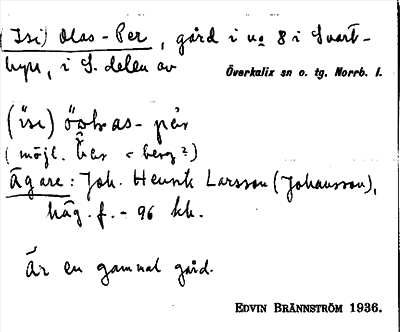 (Isi) Olas-Per, gård i no 8 i Svart-
byn, i S. delen av Överkalix sn o. tg. Norrb. l.
(isi) -pär
(möjl. < berg?)
Ägare: Joh. Henrik Larsson (Johansson),
häg. f. - 96 kh.
Är en gammal gård.
EDVIN BRÄNNSTRÖM 1936.